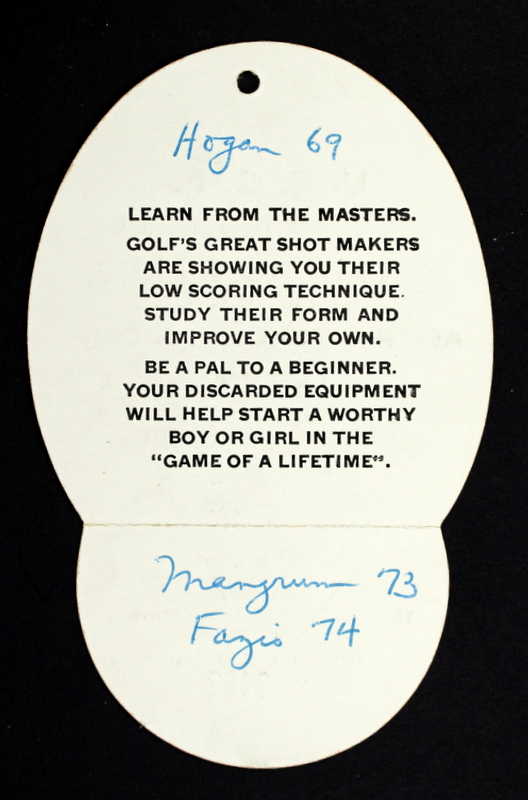 Hogan 69
LEARN FROM THE MASTERS.
GOLF'S GREAT SHOT MAKERS
ARE SHOWING YOU THEIR
LOW SCORING TECHNIQUE.
STUDY THEIR FORM AND
IMPROVE YOUR OWN.
BE A PAL TO A BEGINNER.
YOUR DISCARDED EQUIPMENT
WILL HELP START A WORTHY
BOY OR GIRL IN THE
"GAME OF A LIFETIME".
Mangrum 73
Fazio 74